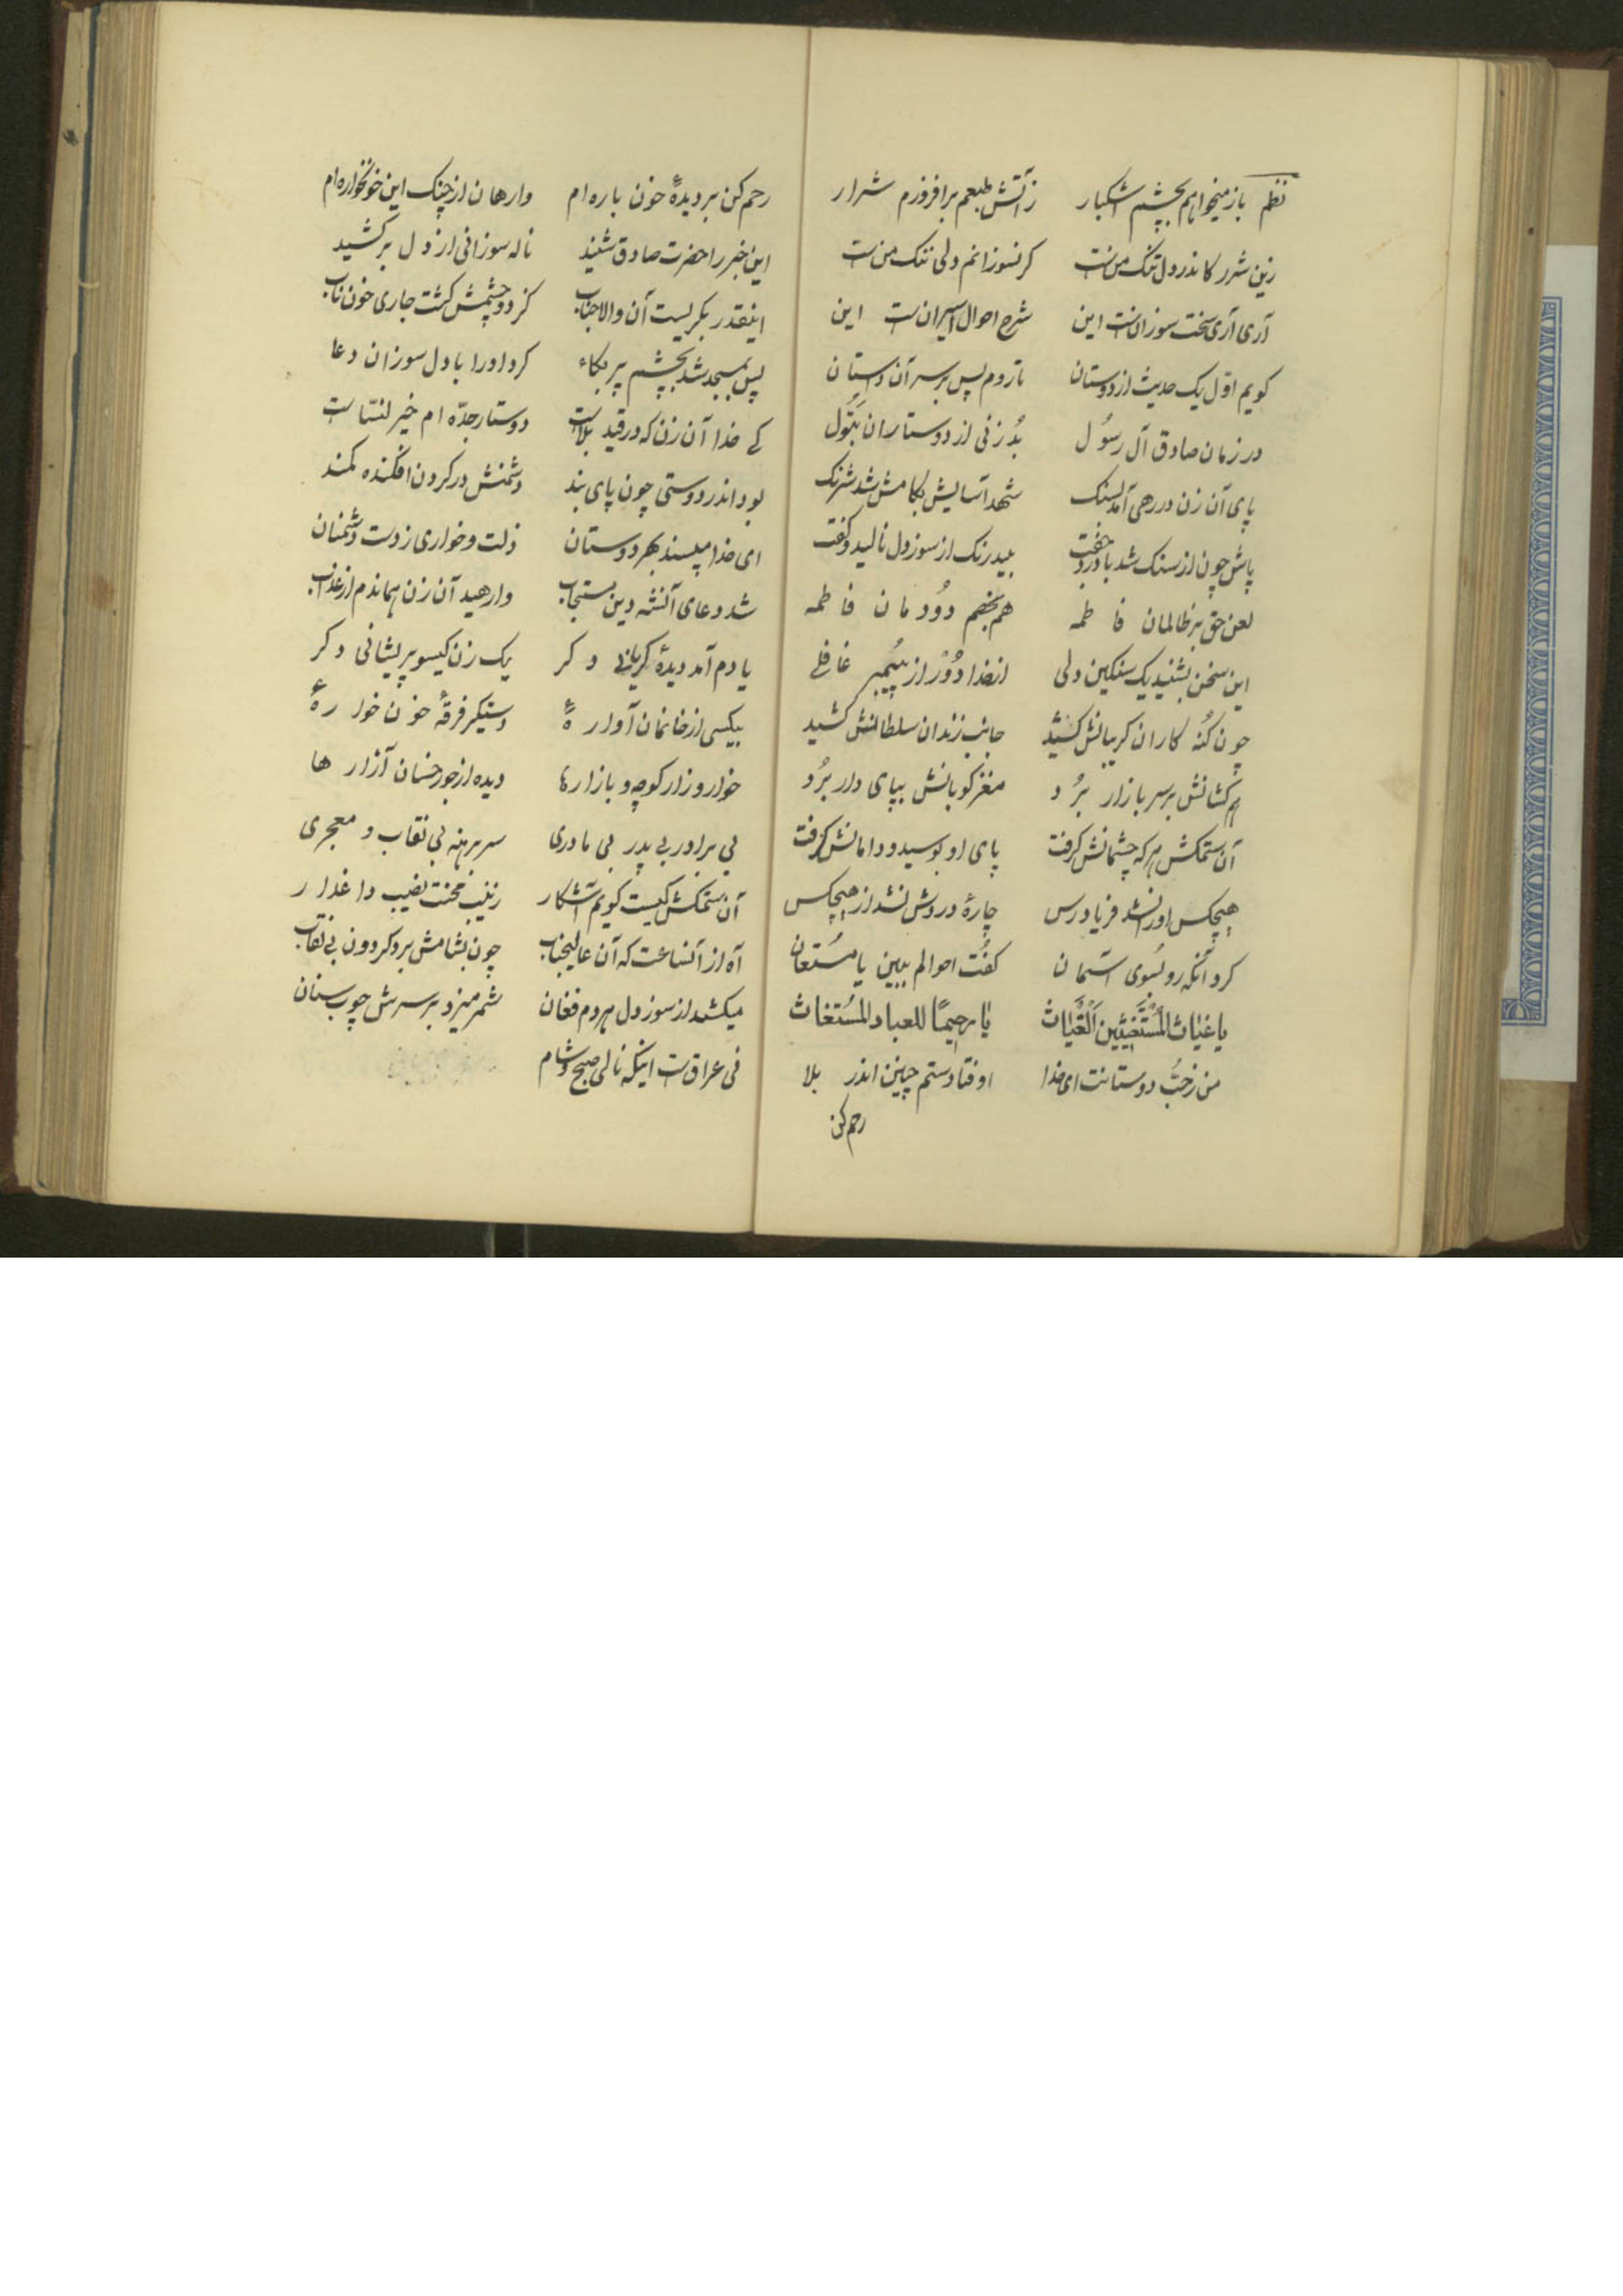 نظم باز میخواهم بچشم اشکبار زآتش طبعم برافروزم شرار
زین شرر کاندر دل تنک منست کر نسوزانم ولی ننک منست
آری آری سخت سوزانست این شرح احوال اسیرانست این
کویم اوّل یک حدیث از دوستان تا روم پس بر سر آن داستان
در زمان صادق آل رسُول بُد زنی از دوستاران بتُول
پای آن زن در رهی آمد بسنک شهد آسایش بکامش شد شرنک
پاش چون از سنک شد با درد جفت بیدرنک از سوز دل نالید و کفت
لعن حق بر ظالمان فاطمه هم بخصم دوُدمان فاطمه
این سخن بشنید یک سنکین دلی از خدا دوُر از پیَمبر غافلے
چون کُنه کاران کریبانش کشید جانب زندان سلطانش کشید
هم کشانش بر سر بازار بُرد مغز کوبانش بپای دار بُرد
آن ستمکش هر که چشمانش کرفت پای او بوسید و دامانش کرفت
هیچکس او را نشد فریادرس چارهٔ دردش نشد از هیچکس
کرد آنکه رو بسُوی آسمان کفُت احوالم ببین یا مسُتعان
یا غیاث المُستَغیثین اَلْغَیاث یا رحیمًا للعباد المُستغاث
من ز حبّ دوستانت ای خدا اوفتادستم چنین اندر بلا
رحم کن
رحم کن بر دیدهٔ خون باره ام وارهان از چنک این خونخواره ام
این خبر را حضرت صادق شنید ناله سوزانی از دل برکشید
اینقدر بکریست آن والاجناب کز دو چشمش کشت جاری خون ناب
پس بمسجد شد بچشم پر بکاء کرد او را با دل سوزان دعا
کے خدا آن زن که در قید بلاست دوستار جدّه ام خیر لنسّاست
بود اندر دوستی چون پای بند دشمنش در کردن افکنده کمند
ای خدا مپسند بهر دوستان ذلت و خواری ز دست دشمنان
شد دعای آنشه دین مستجاب وارهید آن زن هماندم از عذاب
یادم آمد دیدهٔ کریانی دکر یک زن کیسو پریشانی دکر
بیکسی از خانمان آوارهٔ دستکیر فرقهٔ خونخوارهٔ
خوار و زار کوچه و بازارها دیده از جور خسان آزارها
بی برادر بی پدر بی مادری سر برهنه بی نقاب و معجری
آن ستمکش کیست کویم آشکار زینب محنت نصیب داغدار
آه از آنساعت که آن عالیجناب چون بشامش برد کردون بی نقاب
میکشد از سوز دل هر دم فغان شمر میزد بر سرش چوب سنان
فی عراقست اینکه نالی صبح و شام